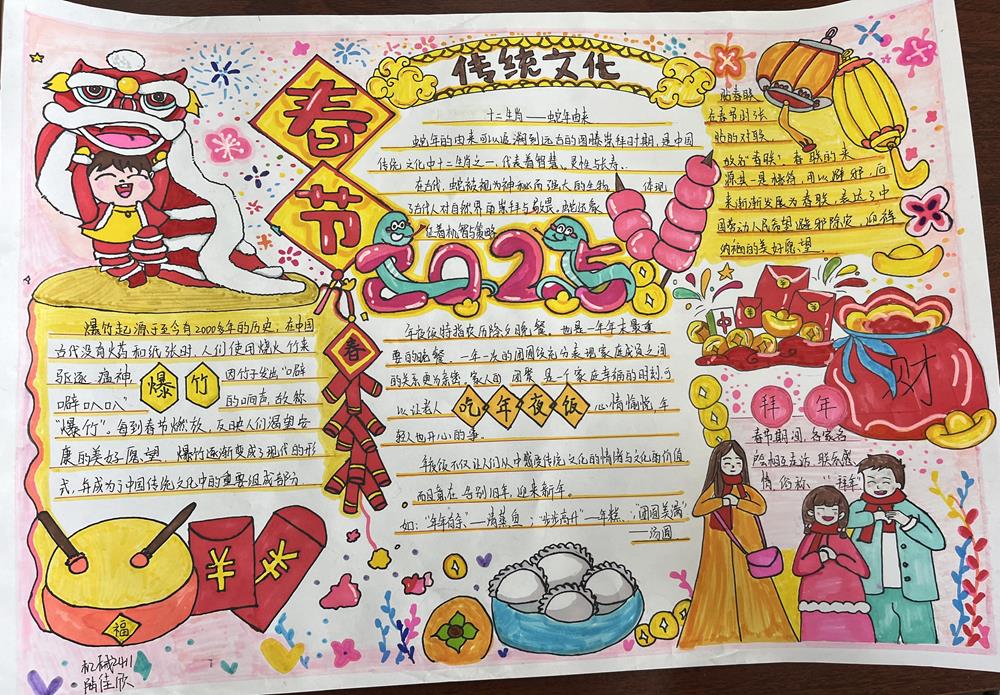 传统文化
春节
十二生肖——蛇年由来
蛇年的由来可以追溯到远古的图腾崇拜时期,是中国
传统文化中十二生肖之一,代表着智慧、灵性与长寿.
在古代,蛇被视为神秘而强大的生物, 体现
了古代人对自然界的崇拜与敬畏.蛇还象
征着机智与策略
2025
贴春联
在春节时张
贴的对联
故名春联! 春联的来
源其一是桃符,可以避邪,后
来渐渐发展为春联,表达了中
国劳动人民希望辟邪除灾、迎祥
纳福的美好愿望.
爆竹起源于至今有2000多年的历史,在中国
古代没有火药和纸张时,人们使用烧火竹来
驱逐瘟神, 爆竹 因竹子发出“噼
噼叭叭” 的响声,故称
“爆竹”.每到春节燃放,反映人们渴望安
康的美好愿望. 爆竹逐渐变成了现代的形
式,并成为了中国传统文化中的重要组成部分
春
年夜饭特指农历除夕晚餐. 也是一年年末最重
要的晚餐. 一年一度的团圆饭充分表现家庭成员之间
的关系更为紧密,家人的团聚是一个家庭幸福的时刻,可
以让老人 吃年夜饭 心情愉悦,年
轻人也开心的事.
年夜饭不仅让人们从中感受传统文化的情绪与文化的价值
而且意在告别旧年,迎来新年.
如:“年年有余”——清蒸鱼 ;“步步高升”—年糕、“团圆美满”
——汤圆
中
¥
财
拜年
春节期间,各家各
户会相互走访,联乐感
情,俗称:“拜年”
¥
¥
福
机械2411
陆佳欣